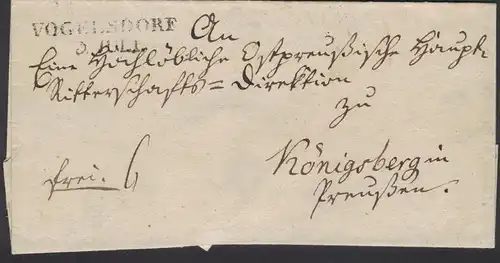 VOGELSDORF
3 JULI
An
Eine Hochlöbliche Ostpreußische Haupt-
Ritterschafts=Direktion
zu
Königsberg in
Preußen.
frei. 6